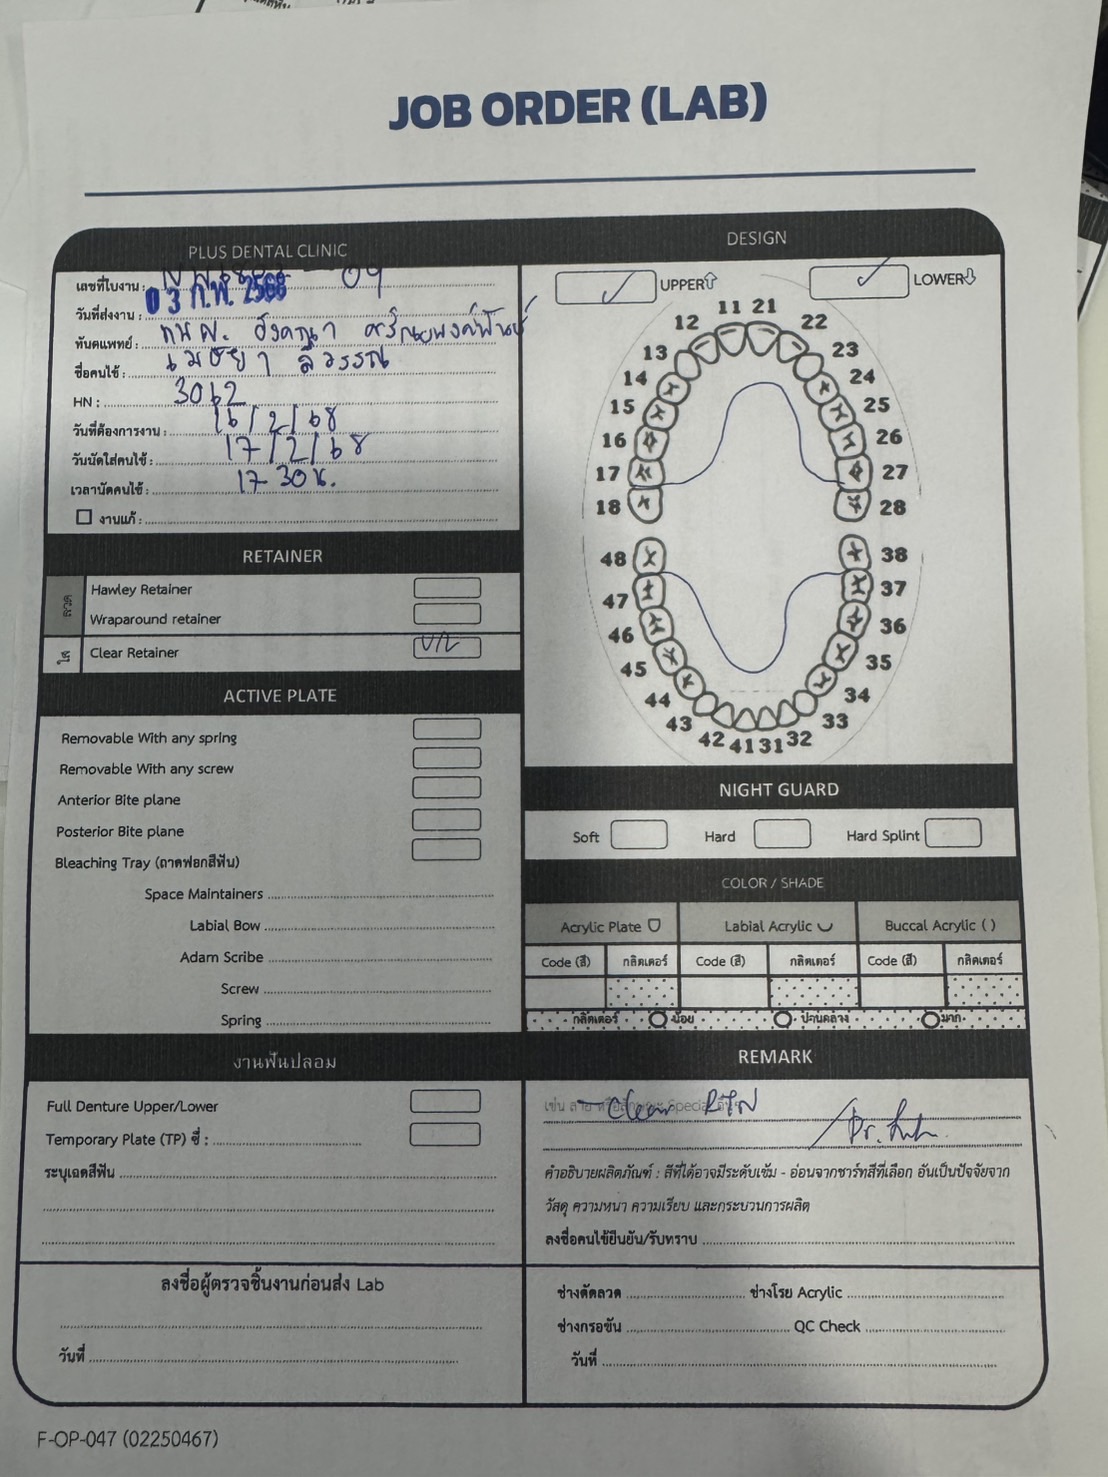 JOB ORDER (LAB)
PLUS DENTAL CLINIC
เลขที่ใบงาน : 09
วันที่ส่งงาน : 03 ก.พ. 2568
ทันตแพทย์ : ทพญ. อังคณา
ชื่อคนไข้ : เมธิยา สีวรรณ
HN : 3062
วันที่ต้องการงาน : 16/2/68
วันนัดใส่คนไข้ : 17/2/68
เวลานัดคนไข้ : 17-30น.
งานแก้ :
RETAINER
ลวด
Hawley Retainer
Wraparound retainer
ใส
Clear Retainer U/L
ACTIVE PLATE
Removable With any spring
Removable With any screw
Anterior Bite plane
Posterior Bite plane
Bleaching Tray (ถาดฟอกสีฟัน)
Space Maintainers
Labial Bow
Adam Scribe
Screw
Spring
งานฟันปลอม
Full Denture Upper/Lower
Temporary Plate (TP) ซี่ :
ระบุเฉดสีฟัน
ลงชื่อผู้ตรวจชิ้นงานก่อนส่ง Lab
วันที่
DESIGN
UPPER
LOWER
11 21
12 22
13 23
14 24
15 25
16 26
17 27
18 28
48 38
47 37
46 36
45 35
44 34
43 33
42 41 31 32
NIGHT GUARD
Soft Hard Hard Splint
COLOR / SHADE
Acrylic Plate Labial Acrylic Buccal Acrylic ( )
Code (สี) กลิตเตอร์ Code (สี) กลิตเตอร์ Code (สี) กลิตเตอร์
กลิตเตอร์ น้อย ปานกลาง มาก
REMARK
เช่น ลาย หรือลักษณะ Special อื่นๆ
- Clear
Dr.
คำอธิบายผลิตภัณฑ์ : สีที่ได้อาจมีระดับเข้ม - อ่อนจากชาร์ทสีที่เลือก อันเป็นปัจจัยจาก
วัสดุ ความหนา ความเรียบ และกระบวนการผลิต
ลงชื่อคนไข้ยืนยัน/รับทราบ
ช่างดัดลวด ช่างโรย Acrylic
ช่างกรอขัน QC Check
วันที่
F-OP-047 (02250467)